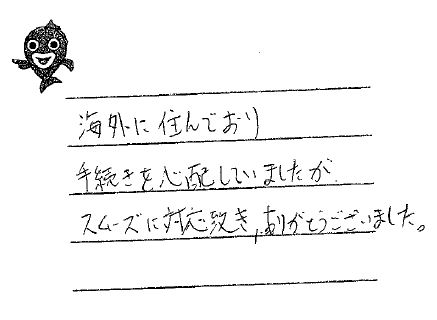 海外に住んでおり
手続きを心配していましたが、
スムーズに対応頂き、ありがとうございました。